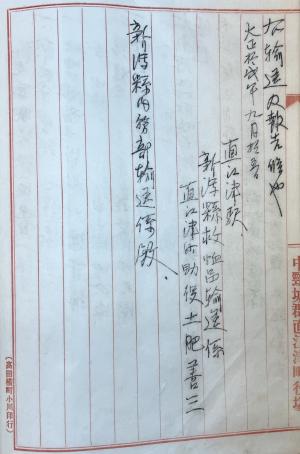 右輸送及報告候也
大正拾弐年九月拾
直江津駅
新潟縣救恤品輸送係
直江津町助役土肥善三
新潟縣内務部輸送係殿
中頸城郡直江津町役場
(高田横町小川印行)